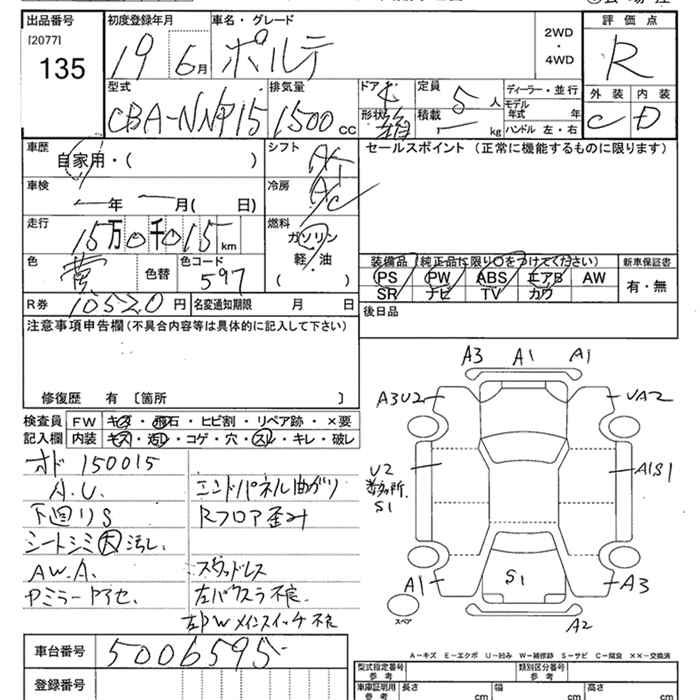 出品番号 初度登録年月 車名・グレード 評価点
[2077] 2WD
・
4WD
135 19 6月 ポルテ R
型式 排気量 ドア 定員 ディーラー・並行 外装 内装
4 5人 モデル年式 年
CBA-NNP15 1500 cc 形状 積載 kg ハンドル 左・右 C D
車歴 シフト セールスポイント (正常に機能するものに限ります)
自家用・( )
車検 冷房
年 月( 日) A/C
走行 燃料
15万0千015km ガソリン
軽・油
( )
色 色替 色コード 装備品 (純正品に限り○をつけてください) 新車保証書
597 PS PW ABS エアB AW 有・無
SR ナビ TV カワ
R券 10520円 名変通知期限 月 日 後日品
注意事項申告欄 (不具合内容等は具体的に記入して下さい)
修復歴 有 〔箇所 〕
検査員 FW キズ・飛石・ヒビ割・リペア跡・×要
記入欄 内装 キズ・汚レ・コゲ・穴・スレ・キレ・破レ
オド 150015
A.U. エンドパネル曲がり
下回りS Rフロア歪み
シートシミ大 汚レ.
AW.A. スタッドレス
ヤミラーヤアセ. 左パワスラ不良.
左PWメインスイッチ不良
A3 A1 A1
A3U2 UA2
U2 A1S1
S1
S1
A1 A3
スペア A2
A−キズ E−エクボ U−凹み W−補修跡 S−サビ C−腐食 ××−交換済
車台番号 5006595
登録番号
型式指定番号 参考 類別区分番号 参考
車庫証明用 参考 長さ cm 幅 cm 高さ cm